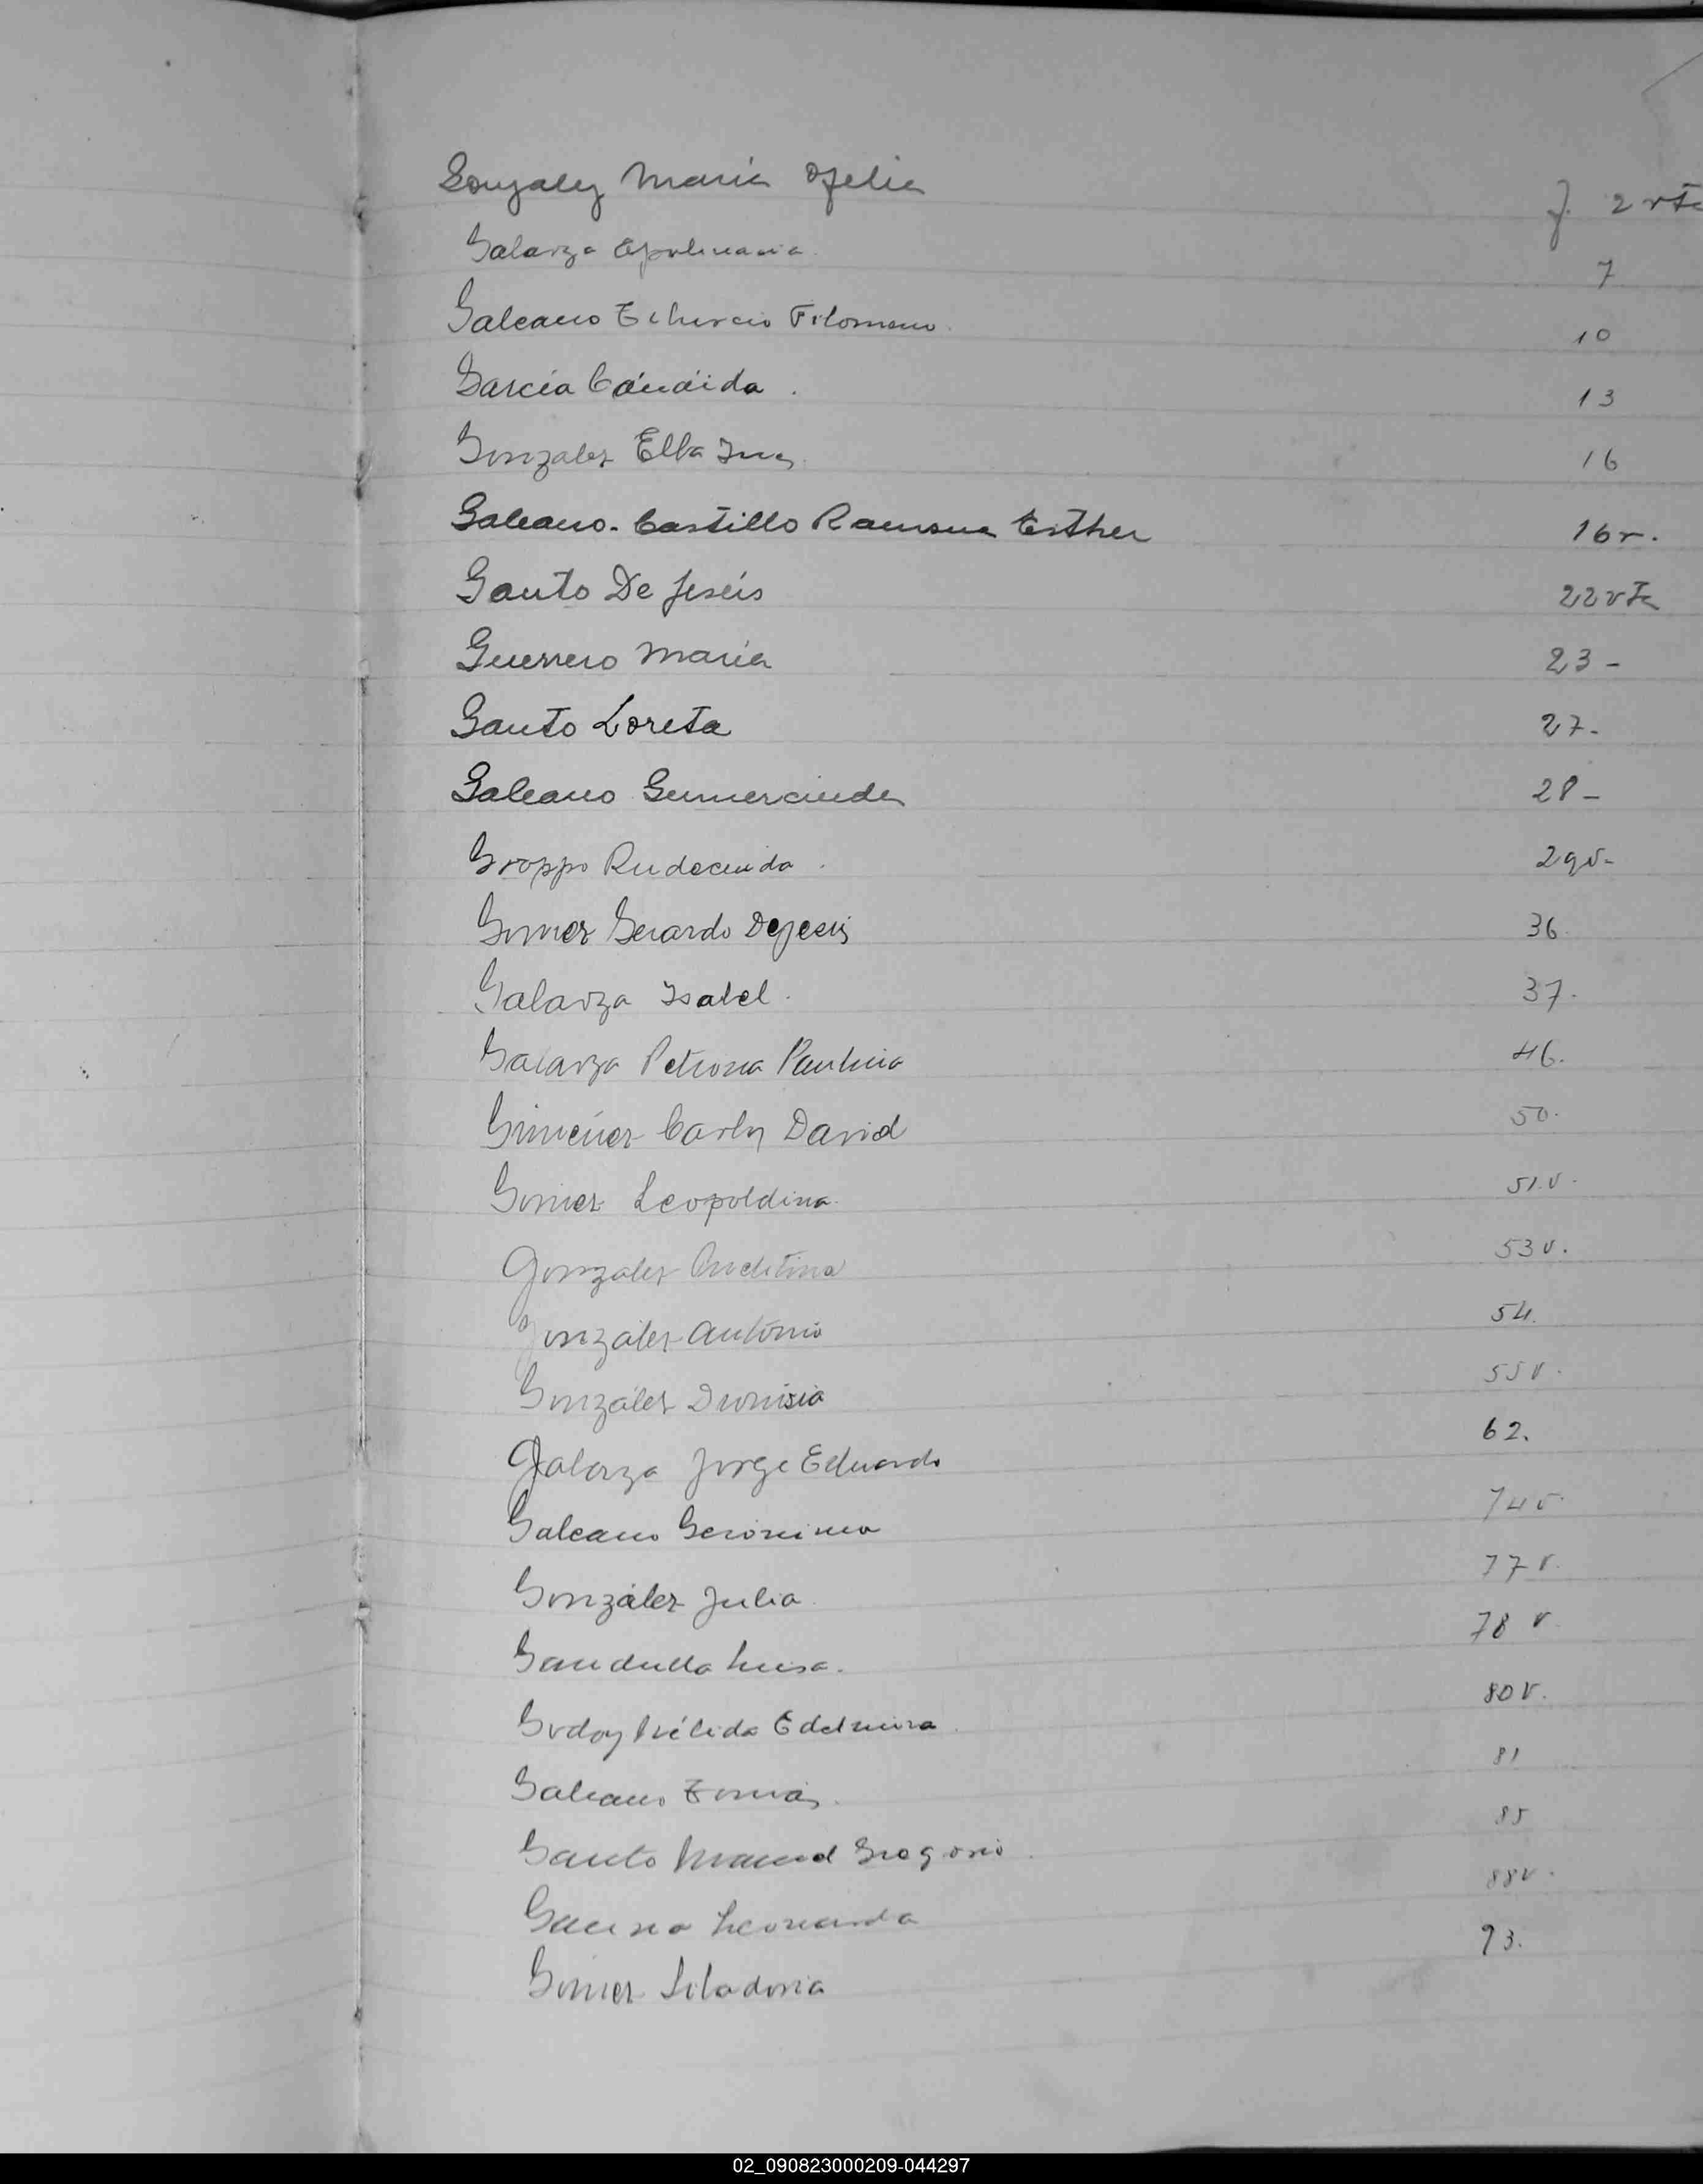 Gonzalez María Ofelia f. 2 vta
Galarza Apolinaria. 7
Galeano Filomeno. 10
García Cándida. 13
Gonzalez Elba Ines. 16
Galeano-Castillo Ramona Esther 16v.
Gauto De Jesús 22 vta
Guerrero María 23-
Gauto Loreta 27-
Galeano Gumercinda 28-
Groppo Rudecinda. 29v-
Gomez Gerardo Dejesus 36.
Galarza Isabel. 37.
Galarza Petrona Paulina 46.
Gimenez Carlos David 50.
Gomez Leopoldina. 51.v.
Gonzalez 53v.
González Antonio 54.
González Dionisia 55v.
Galarza Jorge Eduardo 62.
Galeano Geronima 74v.
González Julia. 77v.
Gandulla Luisa. 78 v.
Godoy Nélida Edelmira. 80v.
Galeano Tomás. 81
Gauto Manuel Gregorio. 85
Leonarda 88v.
Gomez Liladoria 93.
02_090823000209-044297